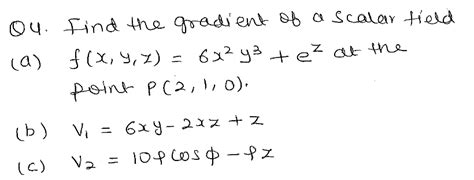 Q4. Find the gradient of a scalar field
(a) f(x, y, z) = 6x² y³ + e^z at the
point P(2, 1, 0).
(b) V₁ = 6xy - 2xz + z
(c) V₂ = 10ρ cos φ - ρz